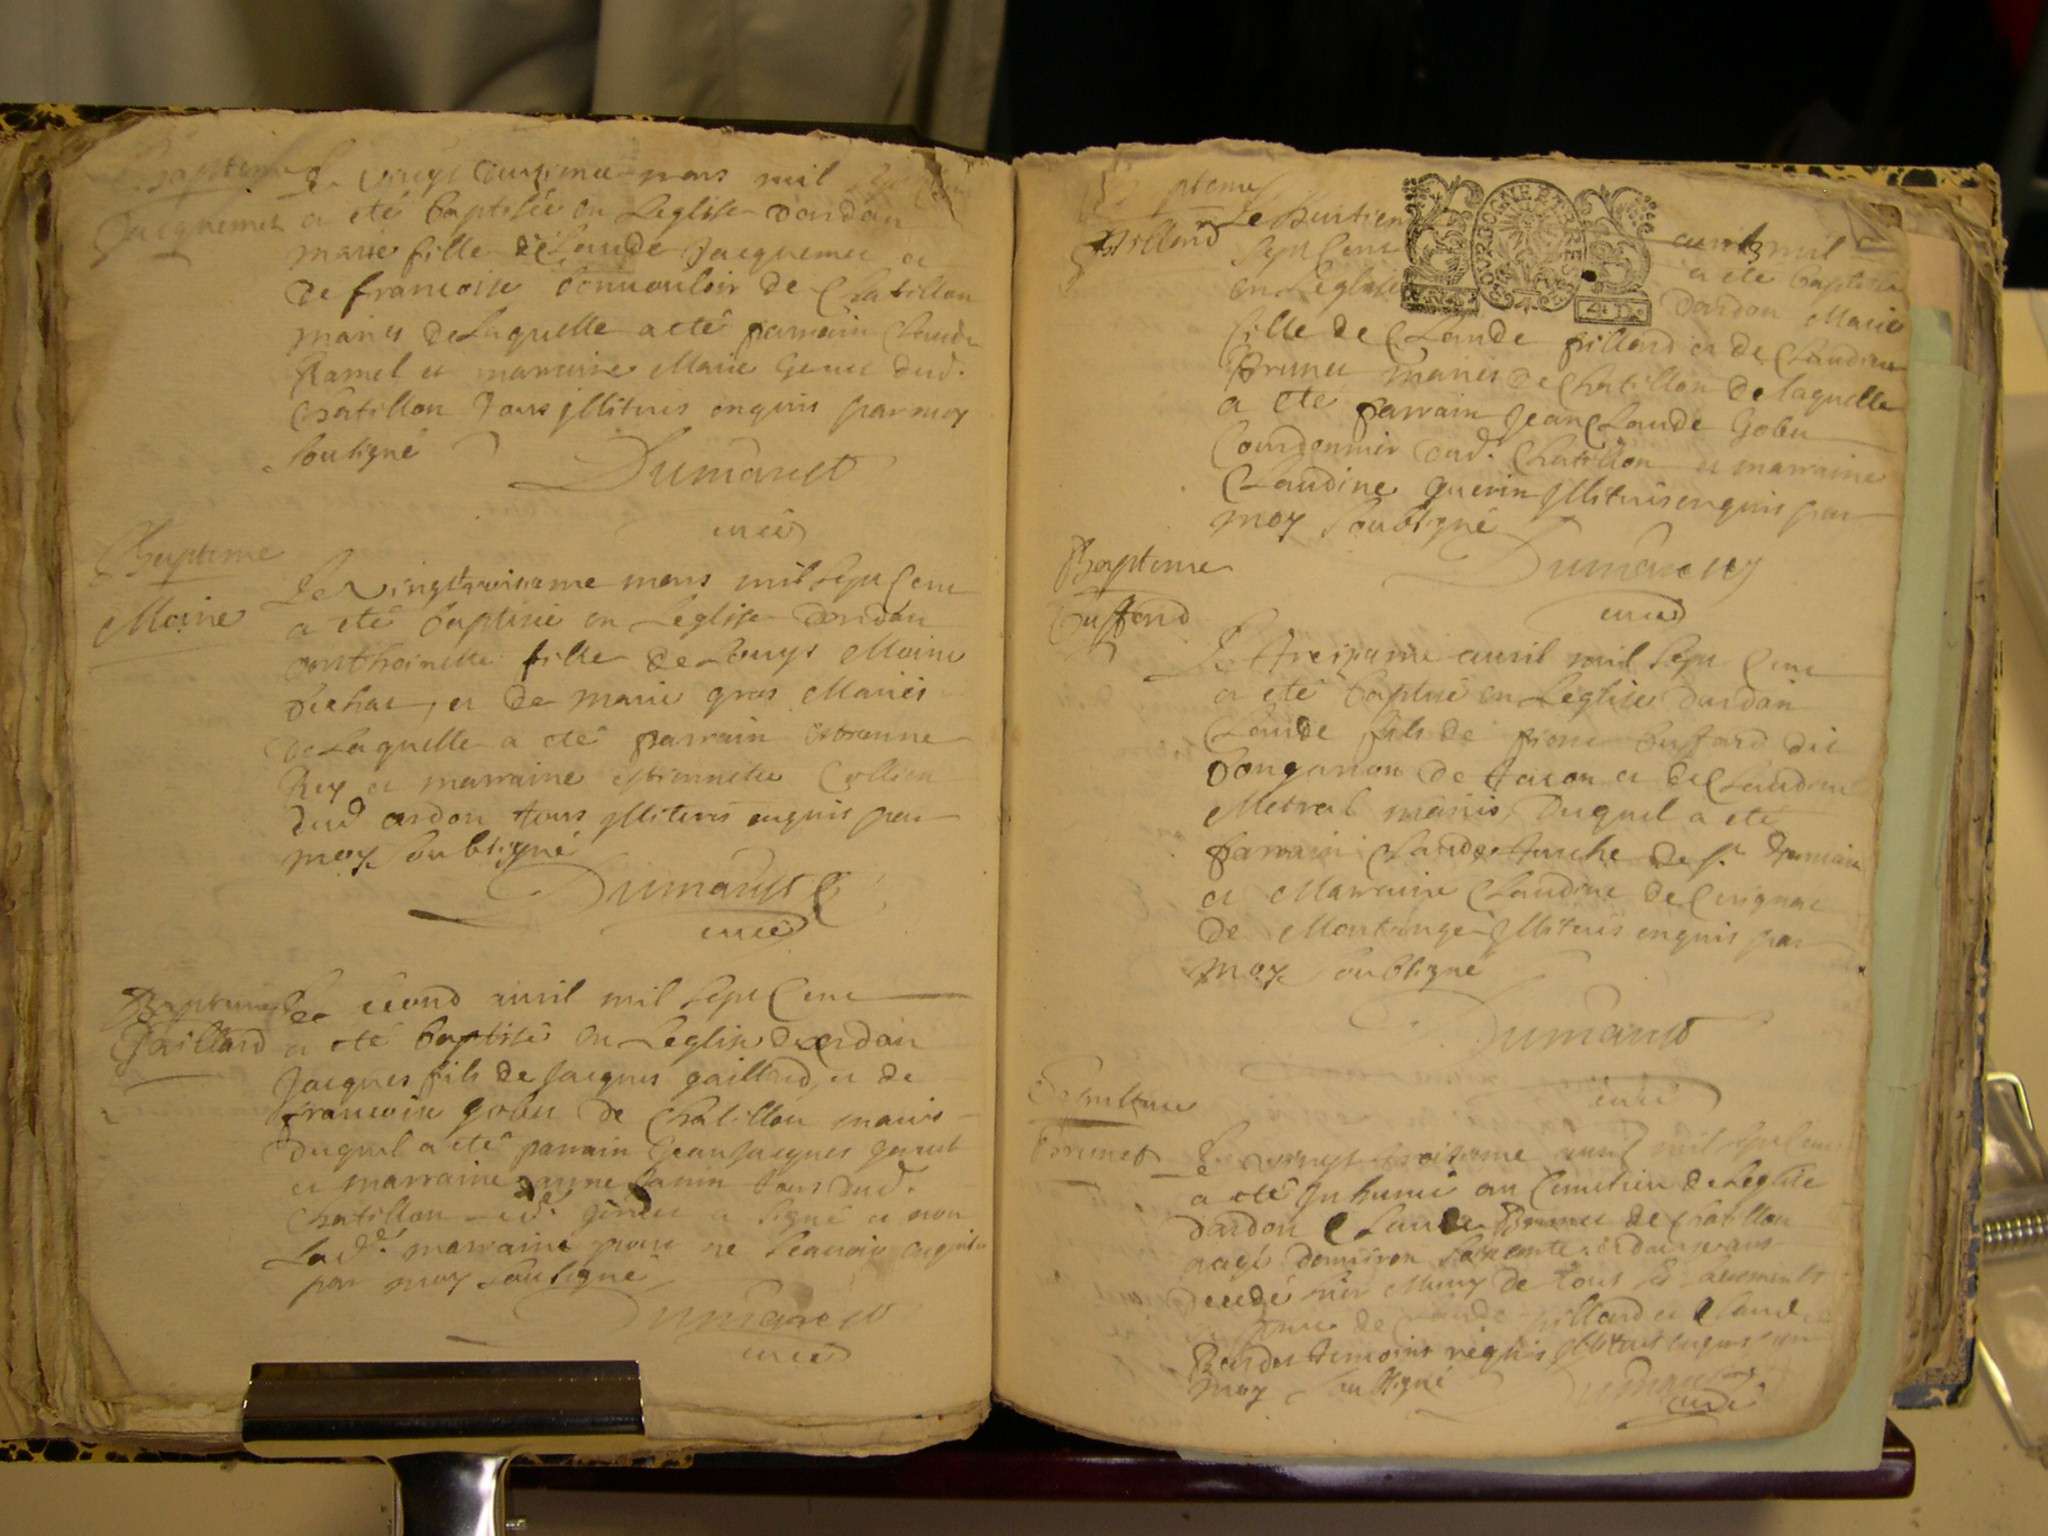 Bapteme
Jacquemet
Le vingt deuxieme mars mil
a eté baptisée en Leglise dardon
marie fille de Claude Jacquemet et
de francoise bonuouloir de Chatillon
mariés de Laquelle a eté parrain Claude
Ramel et marraine Marie Genet dud.
Chatillon Tous jlliterés enquis par moy
soubsigné
Dumarest
curé
Bapteme
Moine
Le vingt troisieme mars mil sept Cent
a eté baptisée en Leglise dardon
anthoinette fille de Louys Moine
et de marie gras Mariés
de Laquelle a eté parrain Estienne
Rey et marraine Estiennette
dud ardon tous jlliterés enquis par
moy soubsigné
Dumarest
curé
Bapteme
Gaillard
Le second auril mil sept Cent
a eté baptisé en Leglise dardon
Jacques fils de Jacques gaillard et de
francoise gobet de Chatillon mariés
duquel a eté parrain Jean Jacques
et marraine anne tous dud.
Chatillon led. a signé et non
lad. marraine pour ne scauoir enquise
par moy soubsigné
Dumarest
curé
Bapteme
pillard
Le huitieme auril mil
sept Cent a eté baptisée
en Leglise dardon Marie
fille de Claude pillard et de Claudine
Brunet mariés de Chatillon de laquelle
a eté parrain Jean Claude Gobet
Courdonnier dud. Chatillon et marraine
Claudine guerin jlliterés enquis par
moy soubsigné
BOURGOGNE ET BRESSE
Dumarest
curé
Bapteme
buffard
Le treizieme auril mil sept Cent
a eté baptisé en Leglise dardon
Claude fils de pierre buffard dit
de tacon et de Claudine
Metral mariés, Duquel a eté
parrain Claude tuche de st germain
et Marraine Claudine de
de Montange jlliterés enquis par
moy soubsigné
Dumarest
curé
Sepulture
Brunet
Le vingt troisieme auril mil sept Cent
a eté Inhumé au Cimetiere de Leglise
dardon Claude Brunet de Chatillon
aagé denuiron soixante et douze ans
decedé hier Muny de tous les sacrements
de Claude pillard et Claude
temoins requis jlliterés enquis par
moy soubsigné
Dumarest
curé